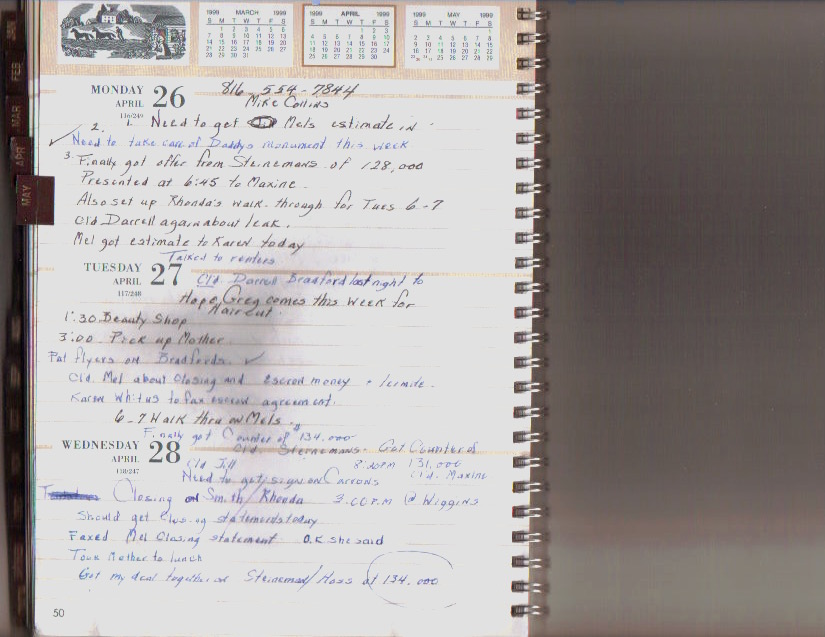 1999 MARCH 1999
S M T W T F S
1 2 3 4 5 6
7 8 9 10 11 12 13
14 15 16 17 18 19 20
21 22 23 24 25 26 27
28 29 30 31
1999 APRIL 1999
S M T W T F S
1 2 3
4 5 6 7 8 9 10
11 12 13 14 15 16 17
18 19 20 21 22 23 24
25 26 27 28 29 30
1999 MAY 1999
S M T W T F S
1
2 3 4 5 6 7 8
9 10 11 12 13 14 15
16 17 18 19 20 21 22
FEB
MAR
APR
MAY
MONDAY
APRIL 26
116/249
816-554-7844
Mike Collins
1. Need to get Mels estimate in
2.
Need to take care of Daddys monument this week
3 Finally got offer from Steinemans of 128,000
Presented at 6:45 to Maxine
Also set up Rhonda's walk-through for Tues 6-7
Cld Darrell again about leak.
Mel got estimate to Karen today
Talked to renters
TUESDAY
APRIL 27
117/248
Cld Darrell Bradford last night to
Hope, Greg comes this week for
Haircut
1:30 Beauty Shop
3:00 Pick up Mother
Put flyers on Bradfords
Cld Mel about Closing and escrow money + termite.
Karen Whit us to fax escrow agreement.
6-7 Walk thru on Mels.
Finally got Counter of $134,000
WEDNESDAY
APRIL 28
118/247
Cld Steinemans - Got Counter of
Cld Jill 8:30PM 131,000
Need to get sign on Carrons Cld. Maxine
Closing on Smith/Rhonda 3:00 P.M @ Wiggins
Should get closing statements today
Faxed Mel Closing statement O.K she said
Took Mother to lunch
Got my deal together on Steineman/Moss at 134,000
50